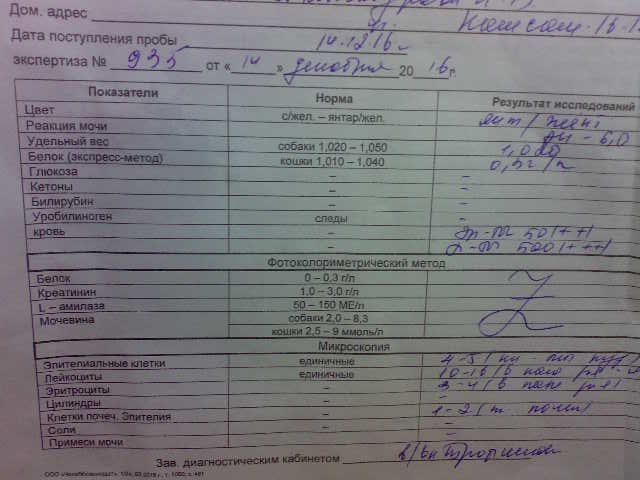 Дом. адрес
Дата поступления пробы 14.12.16г.
экспертиза № 935 от «14» декабря 2016г.
Показатели Норма Результат исследований
Цвет с/жел. – янтар/жел.
Реакция мочи рН – 6,0
Удельный вес собаки 1,020 – 1,050 1,020
Белок (экспресс-метод) кошки 1,010 – 1,040 0,3г/л
Глюкоза – –
Кетоны – –
Билирубин – –
Уробилиноген следы –
кровь – Эр-ты 50(++)
– Л-ты 500(+++)
Фотоколориметрический метод
Белок 0 – 0,3 г/л
Креатинин 1,0 – 3,0 г/л
L – амилаза 50 – 150 МЕ/л
Мочевина собаки 2,0 – 8,3
кошки 2,5 – 9 ммоль/л
Микроскопия
Эпителиальные клетки единичные 4-5
Лейкоциты единичные 10-16 в поле
Эритроциты – 3-4 в поле
Цилиндры – –
Клетки почеч. Эпителия – 1-2
Соли – –
Примеси мочи – –
Зав. диагностическим кабинетом